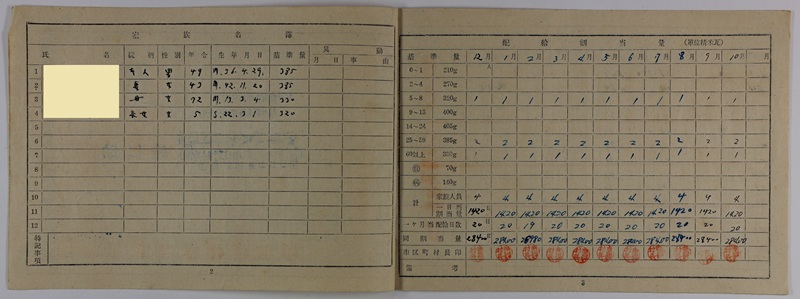 定族名簿
氏 名 続柄 性別 年令 生年月日 基準量 異動
月日 事由
1 本人 男 49 明.36.4.29. 385
2 妻 女 43 明.42.11.20 385
3 母 女 72 明.13.3.4. 330
4 長女 女 5 S.22.3.1 320
5
6
7
8
9
10
11
12
特記事項
2
配給割当量 (単位精米瓦)
基準量 12月 1月 2月 3月 4月 5月 6月 7月 8月 9月 10月 月
0−1 210g
2−4 270g
5−8 320g 1 1 1 1 1 1 1 1 1 1 1
9−13 400g
14−24 405g
25−59 385g 2 2 2 2 2 2 2 2 2 2 2
60以上 330g 1 1 1 1 1 1 1 1 1 1 1
計 家族人員 4 4 4 4 4 4 4 4 4 4 4
一日当割当量 1420 1420 1420 1420 1420 1420 1420 1420 1420 1420 1420
一ヶ月当配給日数 20 20 19 20 20 20 20 20 20 20 20
同割当量 28400 28400 26980 28400 28400 28400 28400 28400 28400 28400 28400
市区町村長印
備考
3